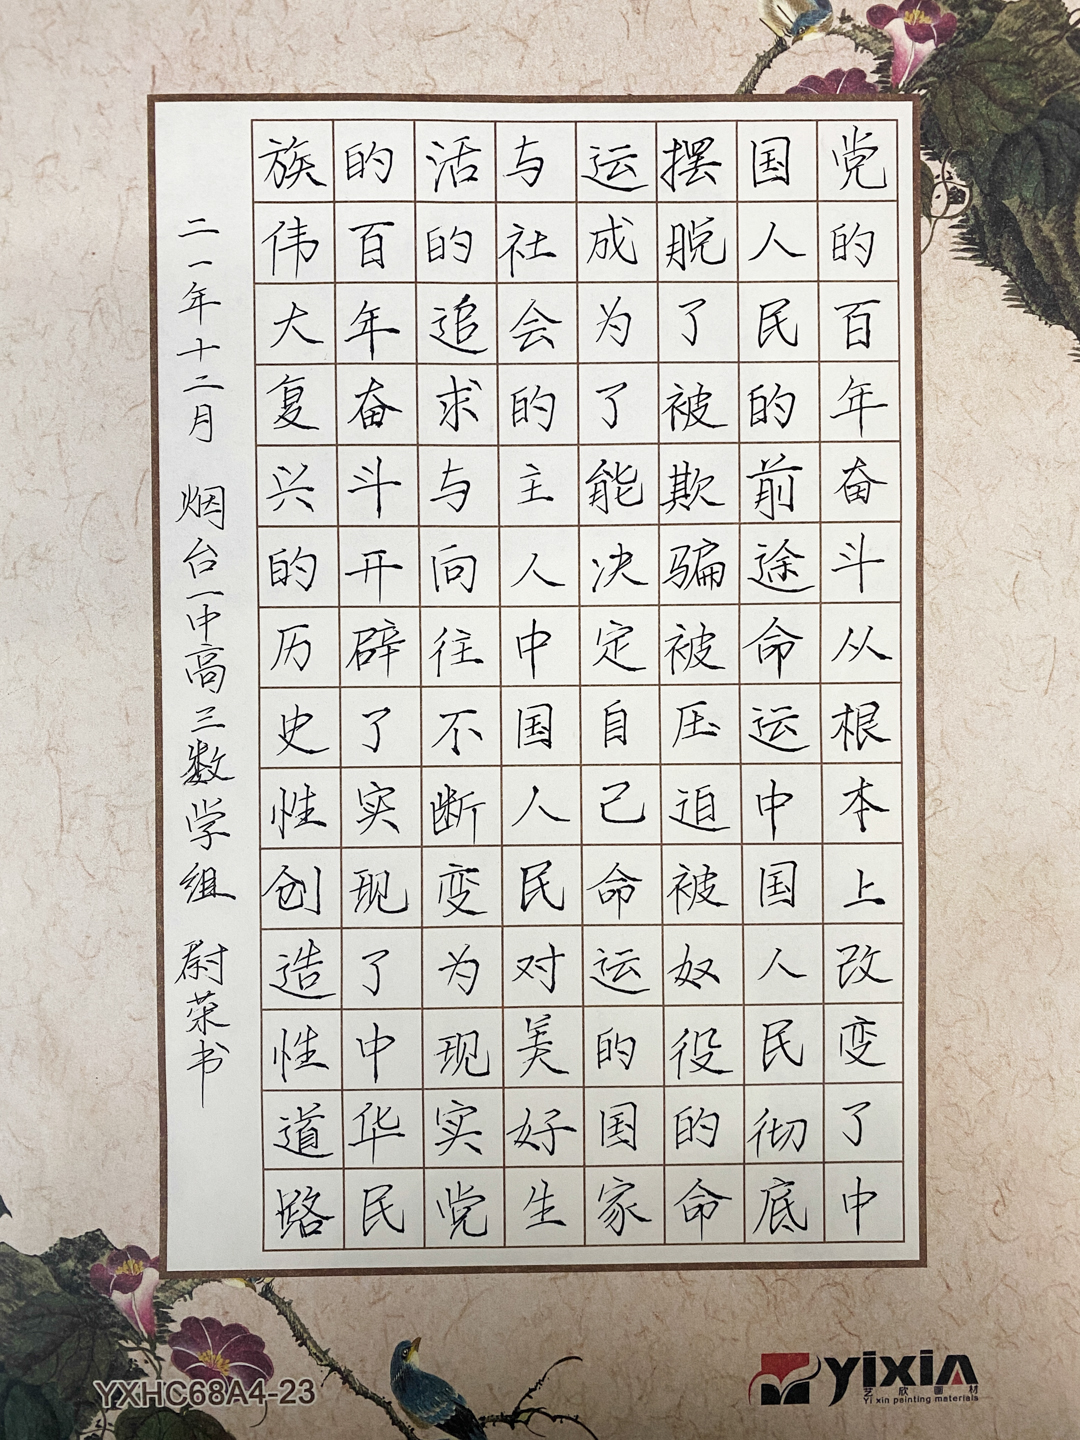 党的百年奋斗从根本上改变了中
国人民的前途命运中国人民彻底
摆脱了被欺骗被压迫被奴役的命
运成为了能决定自己命运的国家
与社会的主人中国人民对美好生
活的追求与向往不断变为现实党
的百年奋斗开辟了实现了中华民
族伟大复兴的历史性创造性道路
二一年十二月 烟台一中高三数学组 尉荣书
YXHC68A4-23
yixin
艺欣画材
Yi xin painting materials